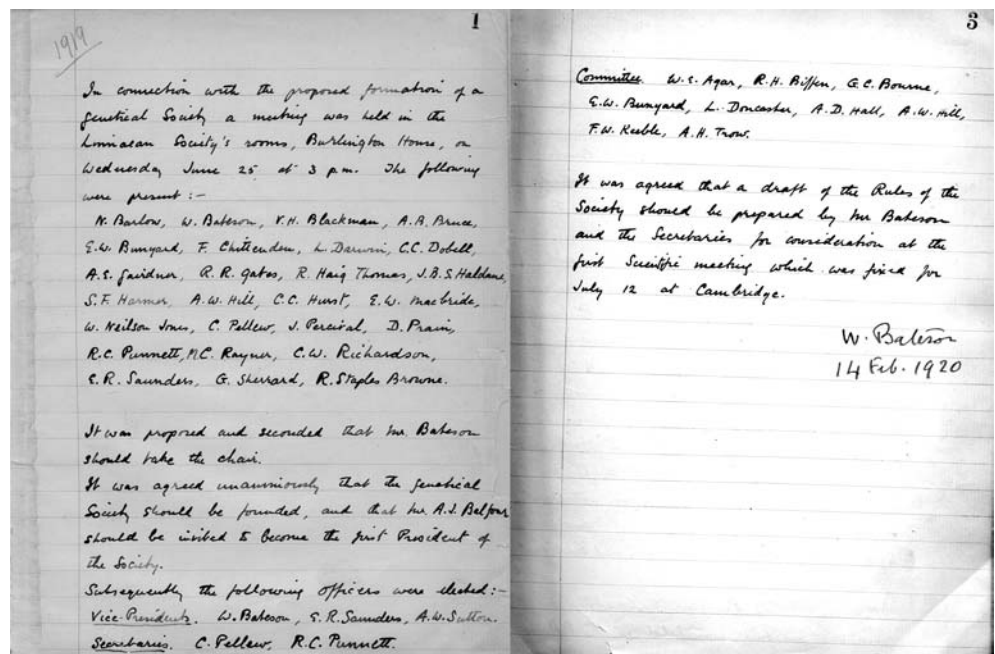 1
1919
In connection with the proposed formation of a
Genetical Society a meeting was held in the
Linnaean Society's rooms, Burlington House, on
Wednesday June 25 at 3 p.m. The following
were present :-
N. Barlow, W. Bateson, V.H. Blackman, A.B. Bruce,
E.W. Bunyard, F. Chittenden, L. Darwin, C.C. Dobell,
A.E. Gairdner, R.R. Gates, R. Haig Thomas, J.B.S. Haldane,
S.F. Harmer, A.W. Hill, C.C. Hurst, E.W. Macbride,
W. Neilson Jones, C. Pellew, J. Percival, D. Prain,
R.C. Punnett, M.C. Rayner, C.W. Richardson,
E.R. Saunders, G. Sherrard, R. Staples Browne.
It was proposed and seconded that Mr. Bateson
should take the chair.
It was agreed unanimously that the Genetical
Society should be founded, and that Mr. A.J. Balfour
should be invited to become the first President of
the Society.
Subsequently the following officers were elected :-
Vice-Presidents. W. Bateson, E.R. Saunders, A.W. Sutton.
Secretaries. C. Pellew, R.C. Punnett.
3
Committee. W.E. Agar, R.H. Biffen, G.C. Bourne,
E.W. Bunyard, L. Doncaster, A.D. Hall, A.W. Hill,
F.W. Keeble, A.H. Trow.
It was agreed that a draft of the Rules of the
Society should be prepared by Mr Bateson
and the Secretaries for consideration at the
first Scientific meeting which was fixed for
July 12 at Cambridge.
W. Bateson
14 Feb. 1920